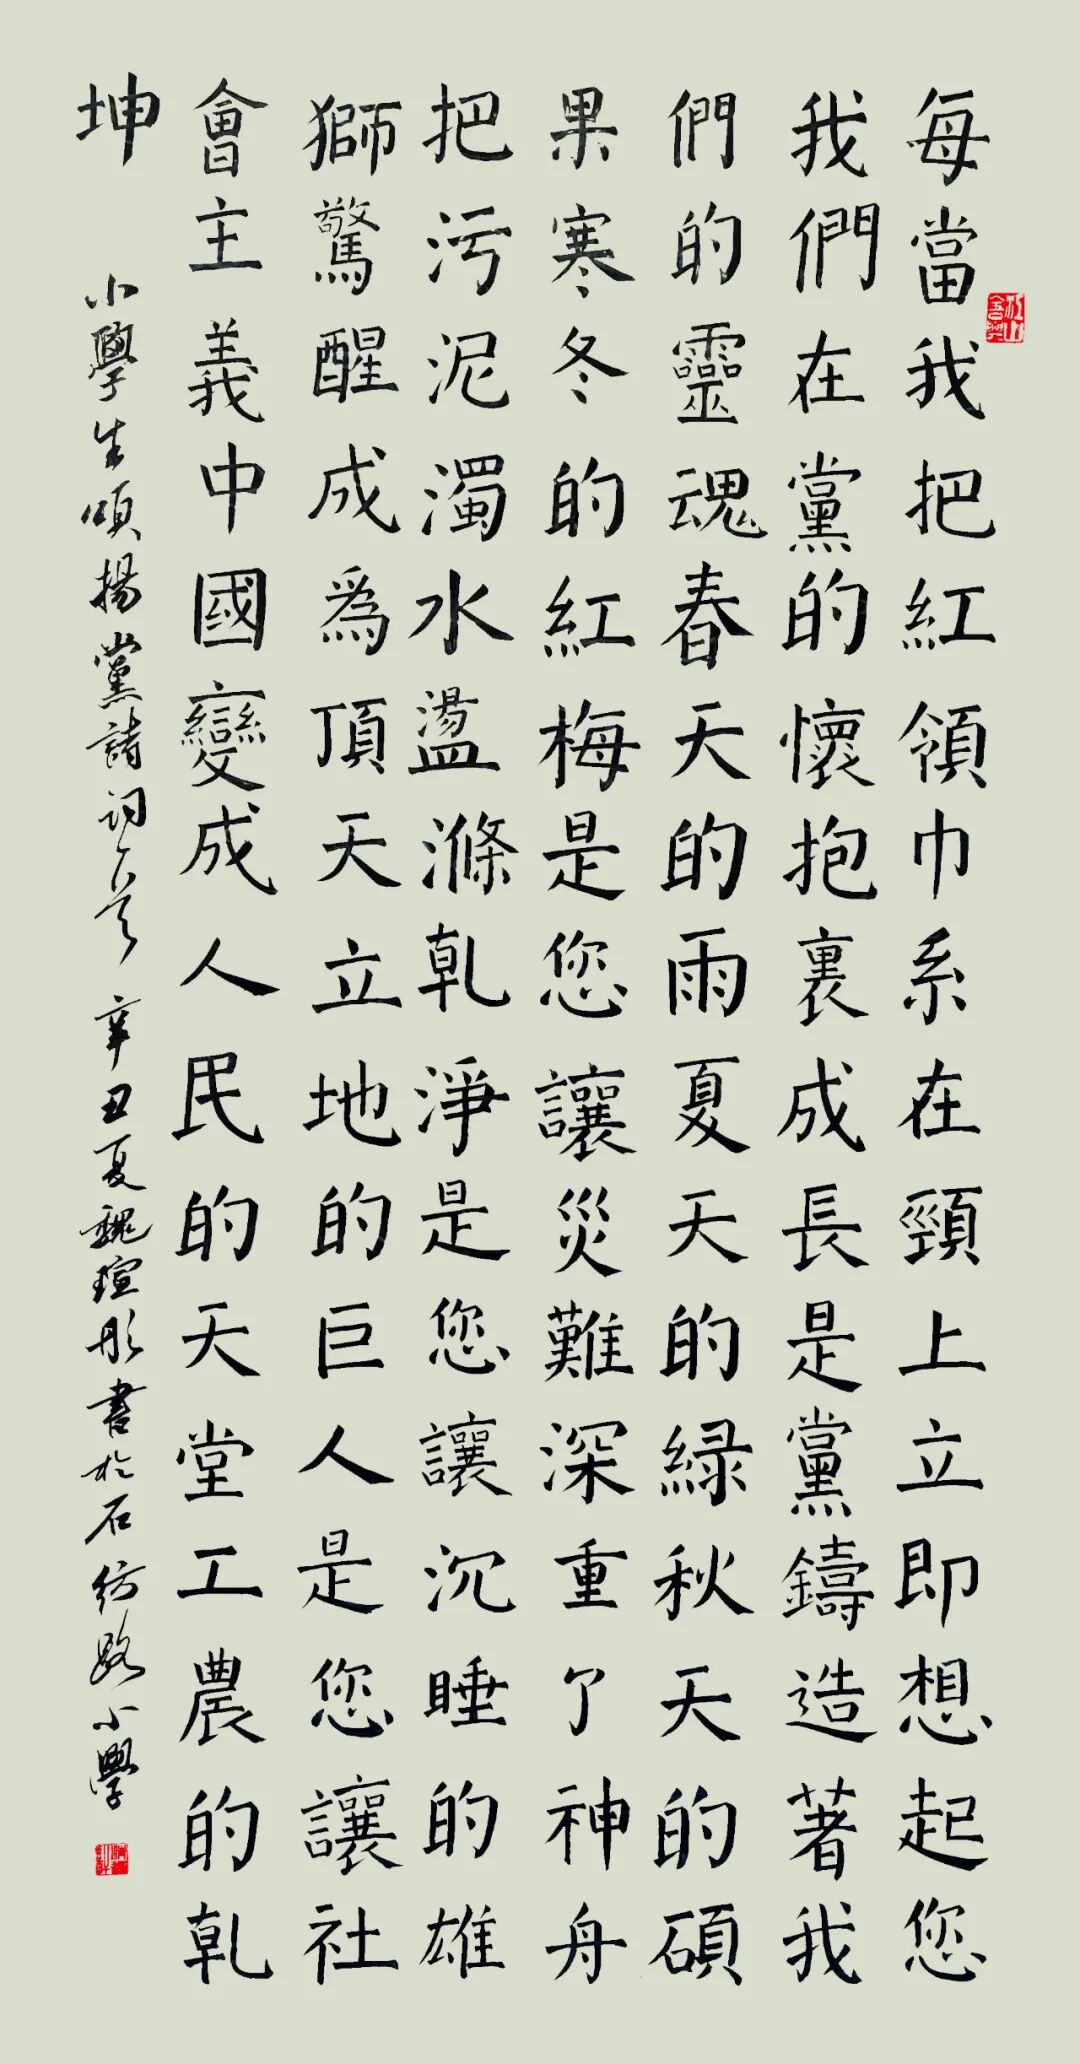 每當我把紅領巾系在頸上立即想起您
我們在黨的懷抱裏成長是黨鑄造著我
們的靈魂春天的雨夏天的緑秋天的碩
果寒冬的紅梅是您讓災難深重了神舟
把污泥濁水盪滌乹淨是您讓沉睡的雄
獅驚醒成爲頂天立地的巨人是您讓社
會主義中國變成人民的天堂工農的乹
坤
小學生頌揚黨詩詞一首 辛丑夏魏瑄彤書於石紡路小學